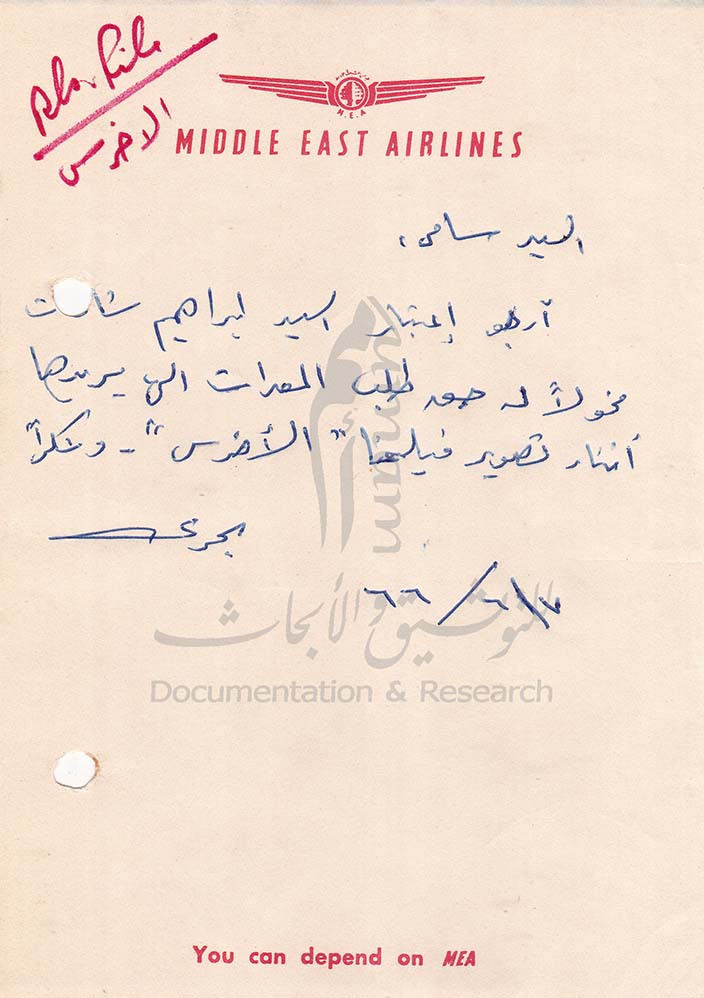 الاخرس
M.E.A
MIDDLE EAST AIRLINES
السيد سامي،
أرجو إعتبار السيد ابراهيم شامات
مخولاً له حق طلب المعدات التي يريدها
أثناء تصوير فيلمنا "الأخرس" - وشكراً
٦٦/٦/٧
أمم umam
للتوثيق والأبحاث
Documentation & Research
You can depend on MEA